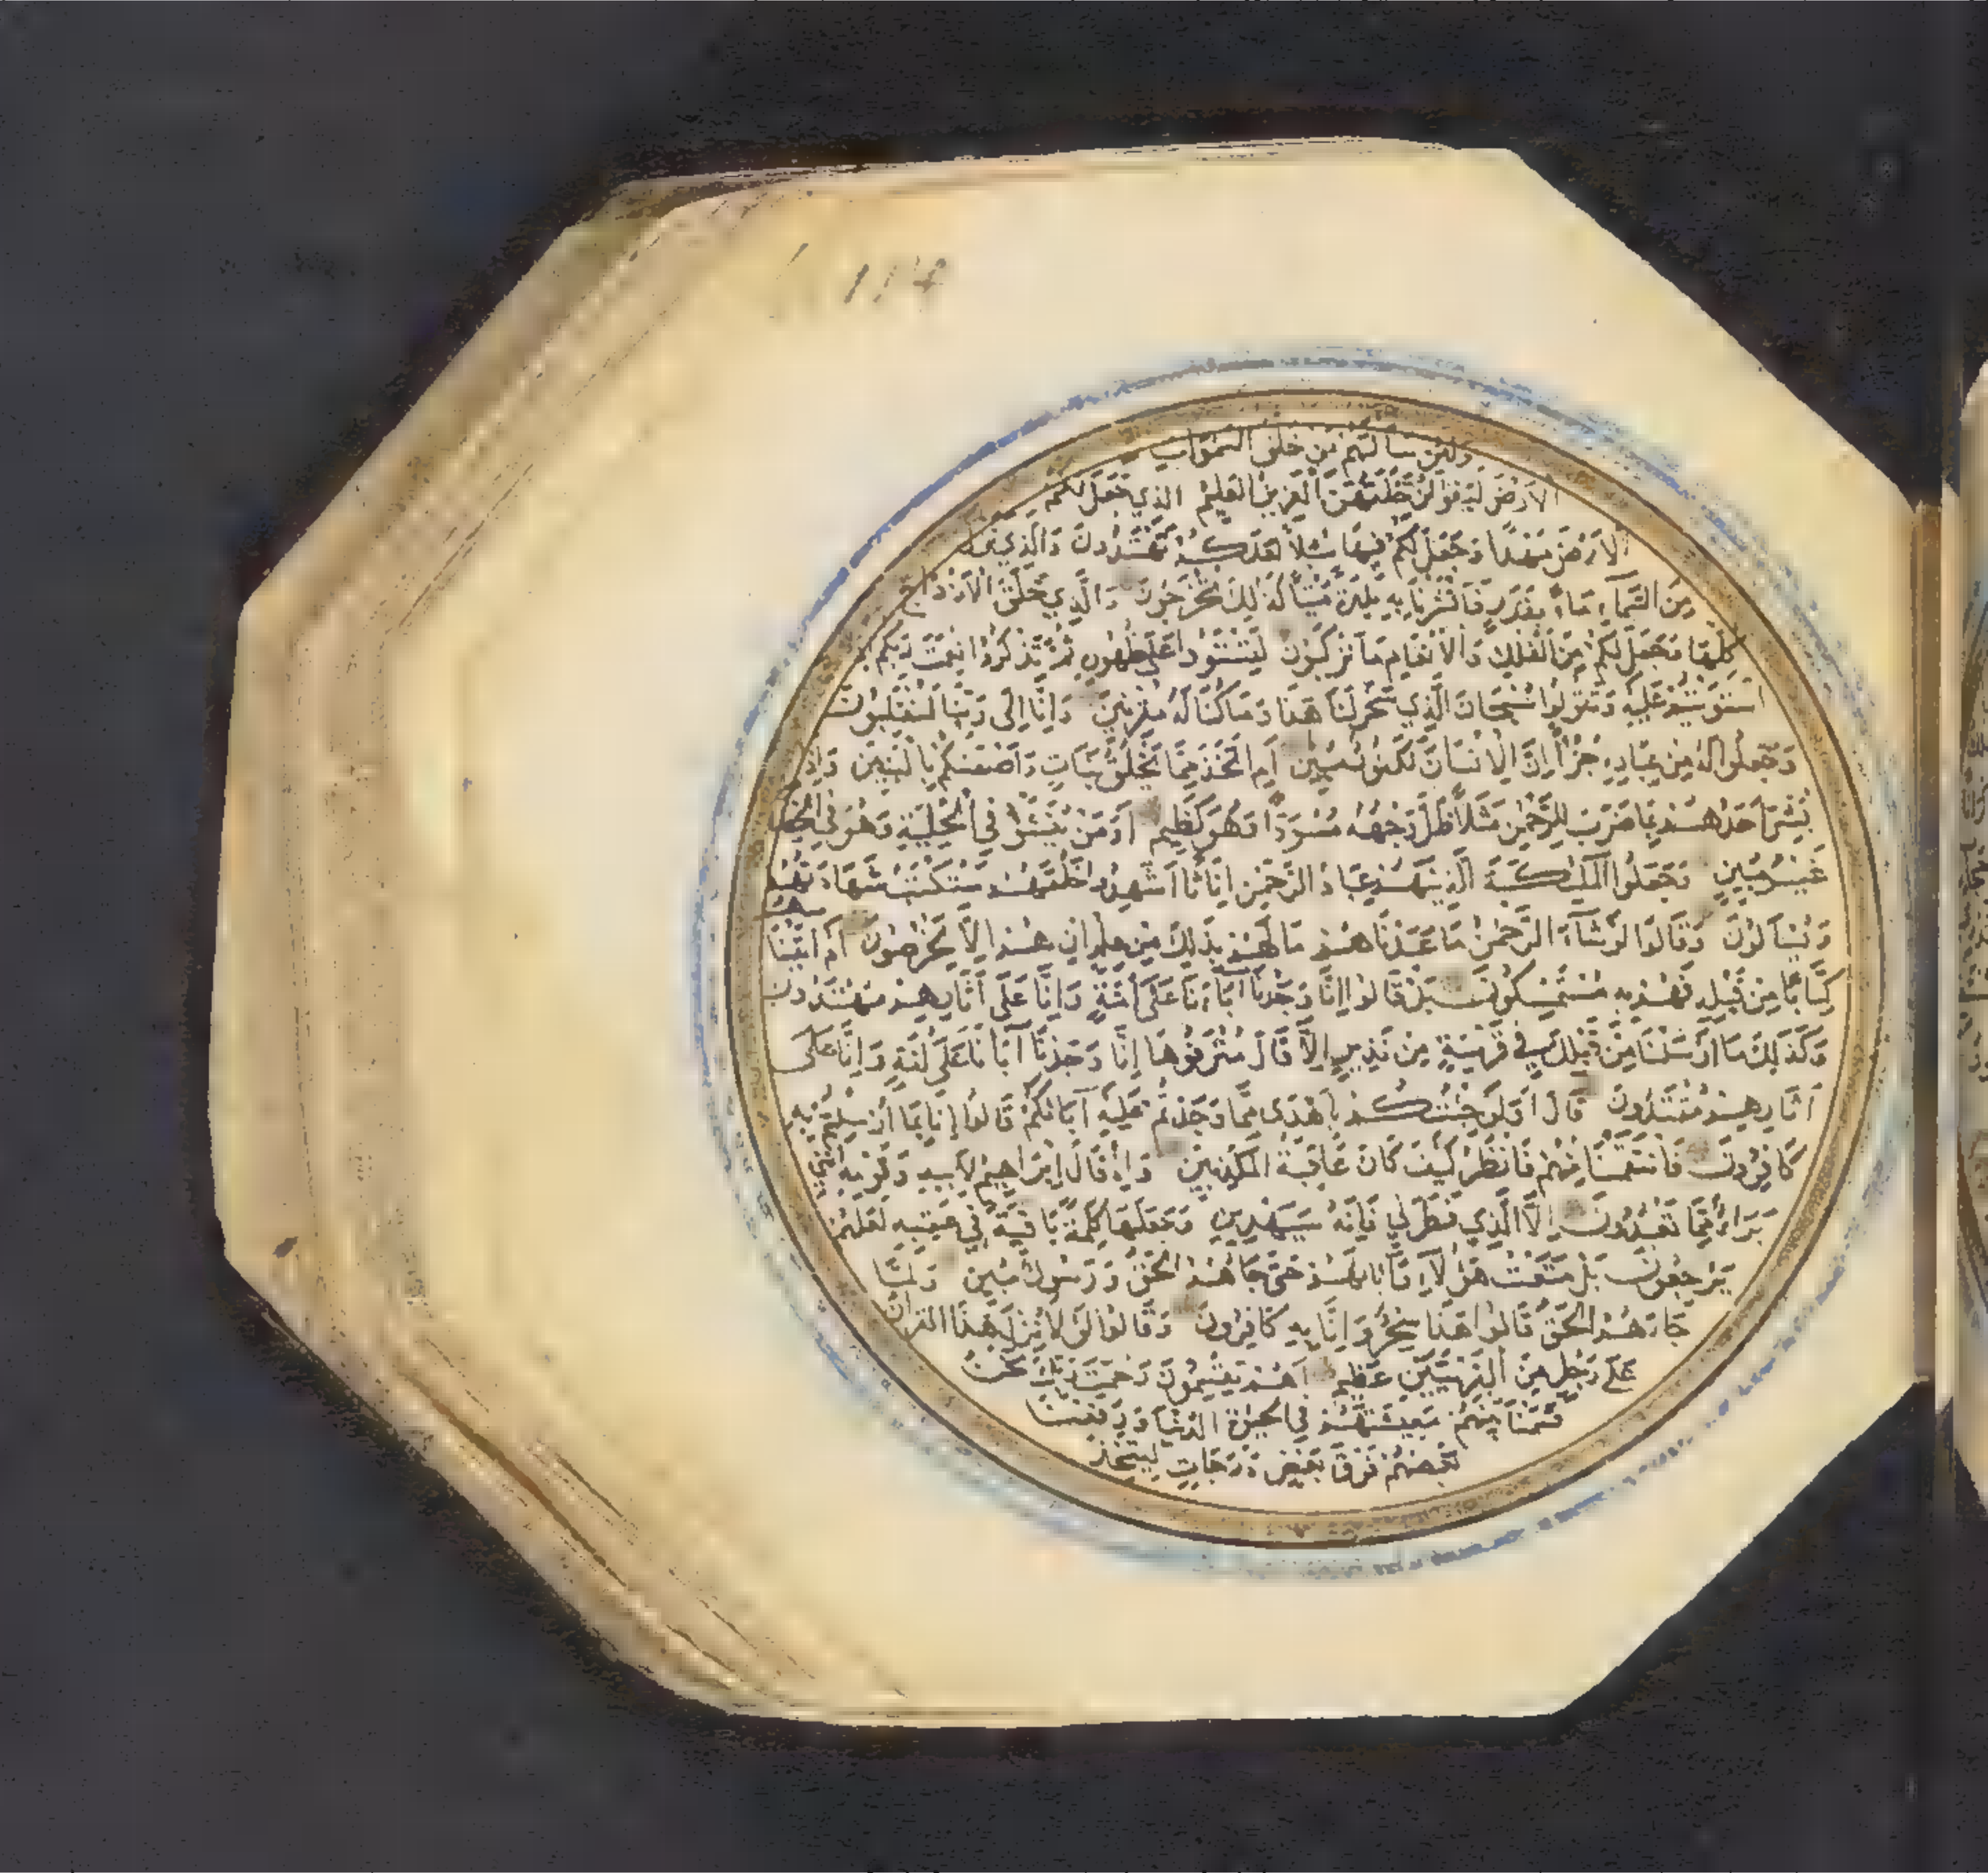 114
ولئن سالتهم من خلق السموات
الارض ليقولن خلقهن العزيز العليم الذي جعل لكم
الارض مهدا وجعل لكم فيها سبلا لعلكم تهتدون والذي نزل
من السماء ماء بقدر فانشرنا به بلدة ميتا كذلك تخرجون والذي خلق الازواج
كلها وجعل لكم من الفلك والانعام ما تركبون لتستووا على ظهوره ثم تذكروا نعمت ربكم اذا
استويتم عليه وتقولوا سبحان الذي سخر لنا هذا وما كنا له مقرنين وانا الى ربنا لمنقلبون
وجعلوا له من عباده جزءا ان الانسان لكفور مبين ام اتخذ مما يخلق بنات واصفيكم بالبنين واذا
بشر احدهم بما ضرب للرحمن مثلا ظل وجهه مسودا وهو كظيم اومن ينشؤ في الحلية وهو في الخصام
غير مبين وجعلوا الملئكة الذينهم عباد الرحمن اناثا اشهدوا خلقهم ستكتب شهادتهم
ويسألون وقالوا لو شاء الرحمن ما عبدناهم ما لهم بذلك من علم ان هم الا يخرصون ام اتينا
كتابا من قبله فهم به مستمسكون بل قالوا انا وجدنا آباءنا على امة وانا على آثارهم مهتدون
وكذلك ما ارسلنا من قبلك في قرية من نذير الا قال مترفوها انا وجدنا آباءنا على امة وانا على
آثارهم مقتدون قال اولو جئتكم باهدى مما وجدتم عليه آبائكم قالوا انا بما ارسلتم به
كافرون فانتقمنا منهم فانظر كيف كان عاقبة المكذبين واذ قال ابراهيم لابيه وقومه انني
براء مما تعبدون الا الذي فطرني فانه سيهدين وجعلها كلمة باقية في عقبه لعلهم
يرجعون بل متعت هؤلاء وآباءهم حتى جاءهم الحق ورسول مبين ولما
جاءهم الحق قالوا هذا سحر وانا به كافرون وقالوا لولا نزل هذا القرآن
على رجل من القريتين عظيم اهم يقسمون رحمت ربك نحن
قسمنا بينهم معيشتهم في الحيوة الدنيا ورفعنا
بعضهم فوق بعض درجات ليتخذ